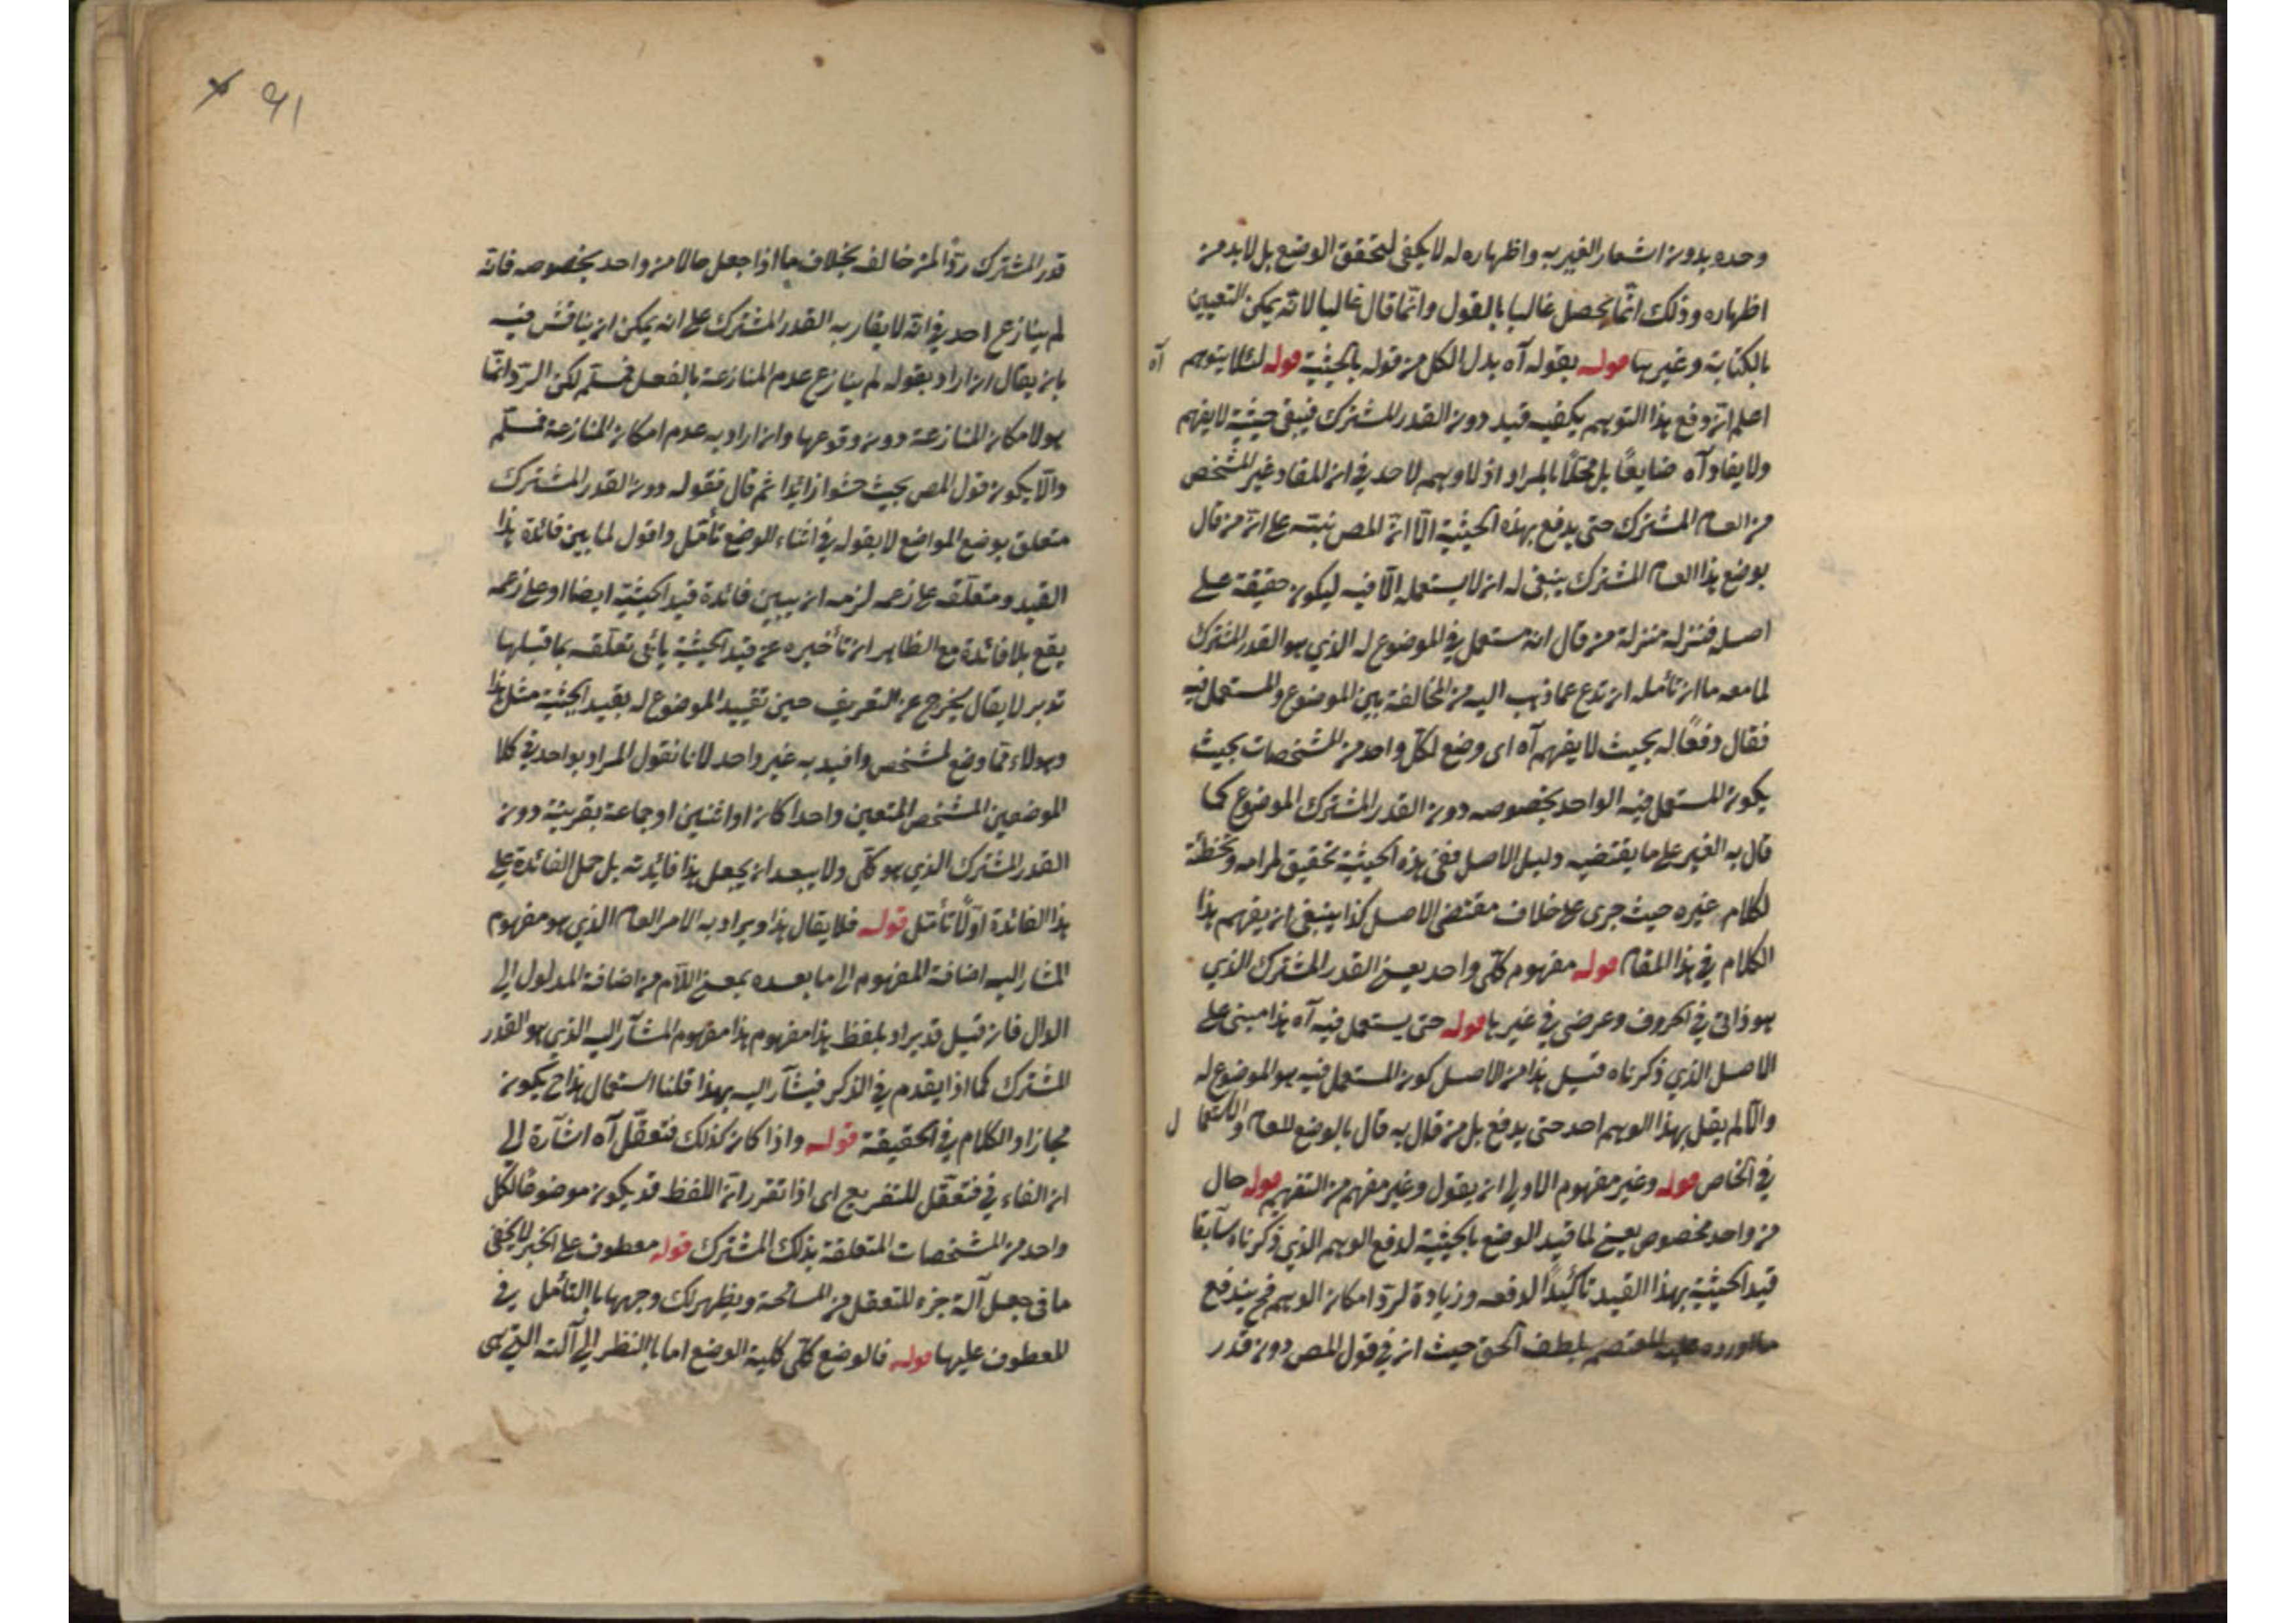 وحده بدون اشعار الغير به واظهاره له لا يكفى لتحقق الوضع بل لا بد من
اظهاره وذلك انّما يحصل غالبا بالقول وانّما قال غالبا لانّه يمكن التعيين
بالكتابة وغيرها قوله بقوله آه بدل الكل من قوله بالحيثية قوله لئلا يتوهم آه
اعلم انّ دفع هذا التوهم يكفيه قيد دون القدر المشترك فيبقى حيثية لا يفهم
ولا يفاد آه ضايعًا بل مخلًا بالمراد اذ لا وهم لاحد في ان المفاد غير المشخص
من العام المشترك حتى يدفع بهذه الحيثية الّا انّ المص نبّه على انّ من قال
بوضع هذا العام المشترك ينبغى له ان لا يستعمله الّا فيه ليكون حقيقة على
اصله فنزله منزلة من قال انه مستعمل في الموضوع له الذي هو القدر المشترك
لما معه ما ان تأمله ارتدع عما ذهب اليه من المخالفة بين الموضوع والمستعمل فيه
فقال دفعًا له بحيث لا يفهم آه اى وضع لكل واحد من المشخصات بحيث
يكون المستعمل فيه الواحد بخصوصه دون القدر المشترك الموضوع كما
قال به الغير على ما يقتضيه دليل الاصل ففى هذه الحيثية تحقيق لمرامه وتخطئة
لكلام غيره حيث جرى على خلاف مقتضى الاصل كذا ينبغى ان يفهم هذا
الكلام في هذا المقام قوله مفهوم كلّى واحد يعنى القدر المشترك الذي
هو ذاتى في الحروف وعرضى في غيرها قوله حتى يستعمل فيه آه هذا مبنى على
الاصل الذي ذكرناه قبيل هذا من الاصل كون المستعمل فيه هو الموضوع له
والّا لم يقل بهذا الوهم احد حتى يدفع بل من قال به قال بالوضع للعام والاستعمال
في الخاص قوله وغير مفهوم الاولى ان يقول وغير مفهم من التفهيم قوله حال
من واحد مخصوص يعنى لما قيد الوضع بالحيثية لدفع الوهم الذي ذكرناه سابقا
قيد الحيثية بهذا القيد تأكيدًا لدفعه وزيادة لردّ امكان الوهم فح يندفع
ما اورده عليه المعتصم بلطف الحق حيث ان في قول المص دون قدر
٩١
قدر المشترك ردّا لمن خالف بخلاف ما اذا جعل حالا من واحد بخصوصه فانه
لم ينازع احد في انّه لا يفاد به القدر المشترك على انه يمكن ان يناقش فيه
بان يقال ان اراد بقوله لم ينازع عدم المنازعة بالفعل فمسلّم لكن الردّ انّما
هو لامكان المنازعة دون وقوعها وان اراد به عدم امكان المنازعة فمسلّم
والّا يكون قول المص بحيث حشوا زائدا ثم قال فقوله دون القدر المشترك
متعلق بوضع المواضع لا بقوله في اثناء الوضع تأمّل واقول لما بين فائدة هذا
القيد ومتعلّقه على زعمه لزمه ان يبيّن فائدة قيد الحيثية ايضا او على زعمه
يقع بلا فائدة مع الظاهر ان تأخيره عن قيد الحيثية يأبى تعلّقه بما قبلها
تدبر لا يقال يخرج عن التعريف حين تقييد الموضوع له بقيد الحيثية مثل هذا
وهولاء ممّا وضع لمشخص وافيد به غير واحد لانا نقول المراد بواحد في كلا
الموضعين المشخص المتعين واحدا كان او اثنين او جماعة بقرينة دون
القدر المشترك الذي هو كلّى ولا يبعد ان يجعل هذا فايدته بل حمل الفائدة على
هذا الفائدة اوّلًا تأمّل قوله فلا يقال هذا ويراد به الامر العام الذي هو مفهوم
المشار اليه اضافة المفهوم الى ما بعده بمعنى اللّام من اضافة المدلول الى
الدال فان قيل قد يراد بلفظ هذا مفهوم هذا مفهوم المشآر اليه الذي هو القدر
المشترك كما اذا يقدم في الذكر فيشآر اليه بهذا قلنا استعمال هذا ح يكون
مجازا والكلام في الحقيقة قوله واذا كان كذلك فتعقّل آه اشآرة الى
ان الفاء في فتعقّل للتفريع اى اذا تقرر انّ اللفظ قد يكون موضوعًا لكل
واحد من المشخصات المتعلقة بذلك المشترك قوله معطوف على الخبر لا يخفى
ما في جعل آلة جزء للتعقل من المسامحة ويظهر لك وجهها بالتأمل في
المعطوف عليها قوله فالوضع كلّى كلية الوضع اما بالنظر الى آلته التي هى